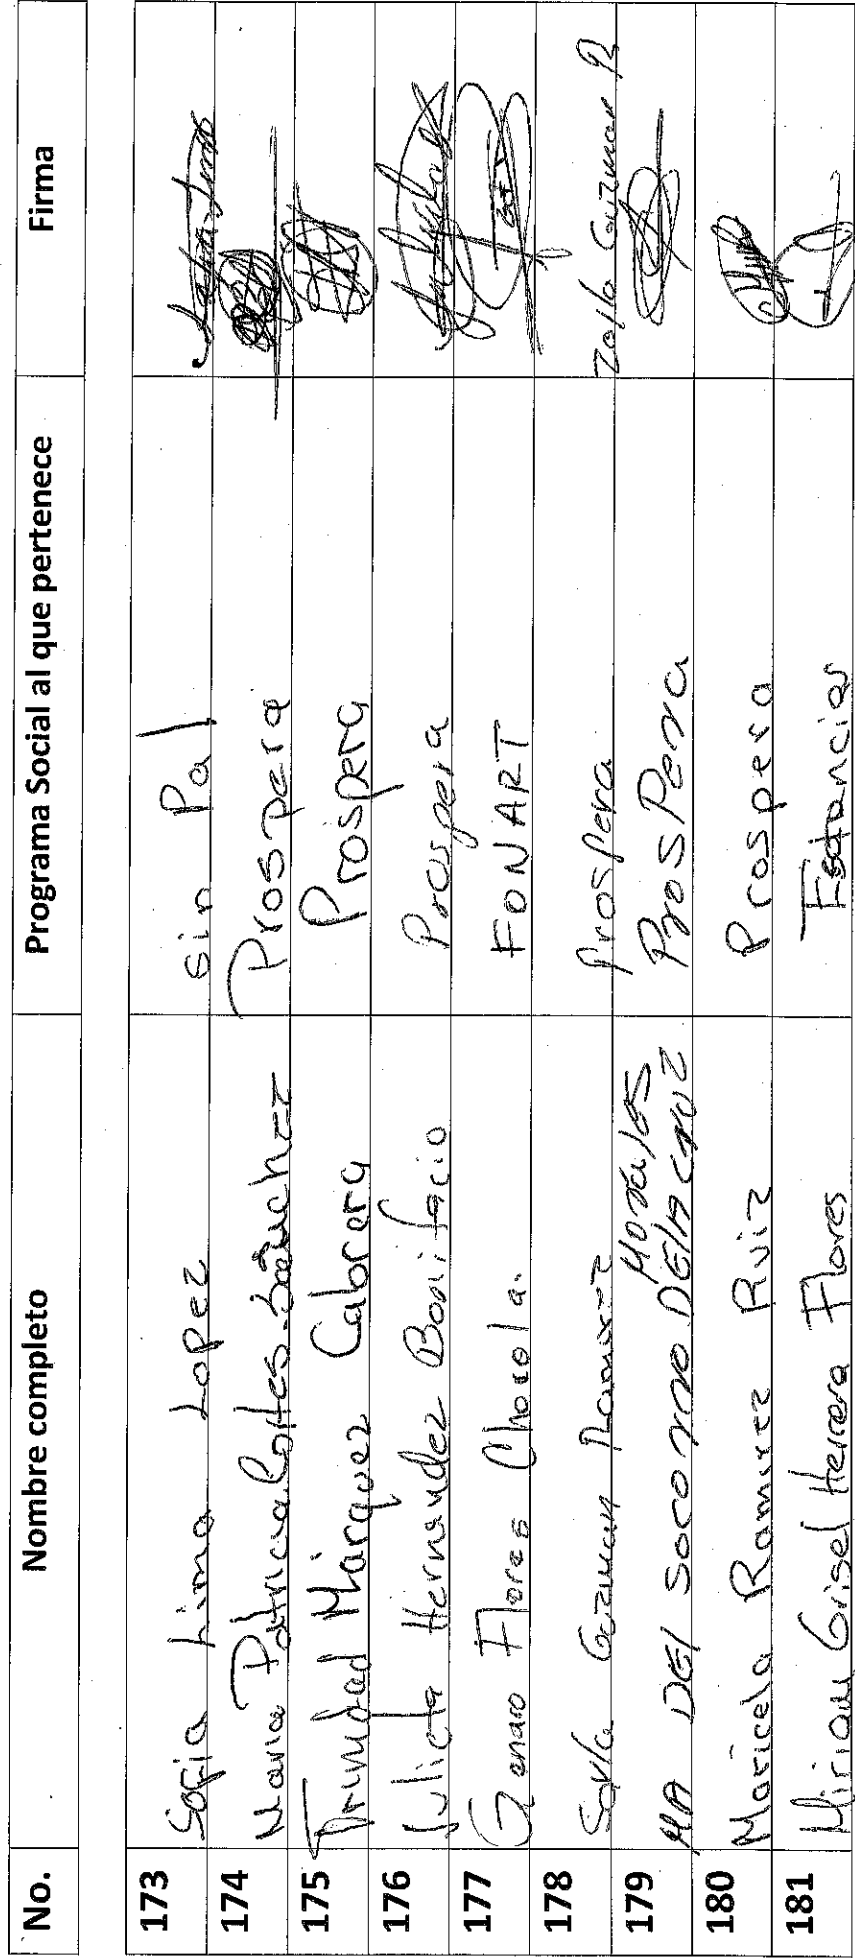 No. Nombre completo Programa Social al que pertenece Firma
173 Sofia Lima Lopez sin Pal
174 Maria Patricia Cortes Sánchez Prospera
175 Trinidad Márquez Cabrera Prospera
176 Julieta Hernandez Bonifacio Prospera
177 Genaro Flores Chorola. FONART
178 Guzman Ramirez Prospera Guzman R
Morales
179 MA DEl Socorro DElA cruz ProsPera
180 Maricela Ramirez Ruiz Prospera
181 Miriam Grisel Herrera Flores Estancias